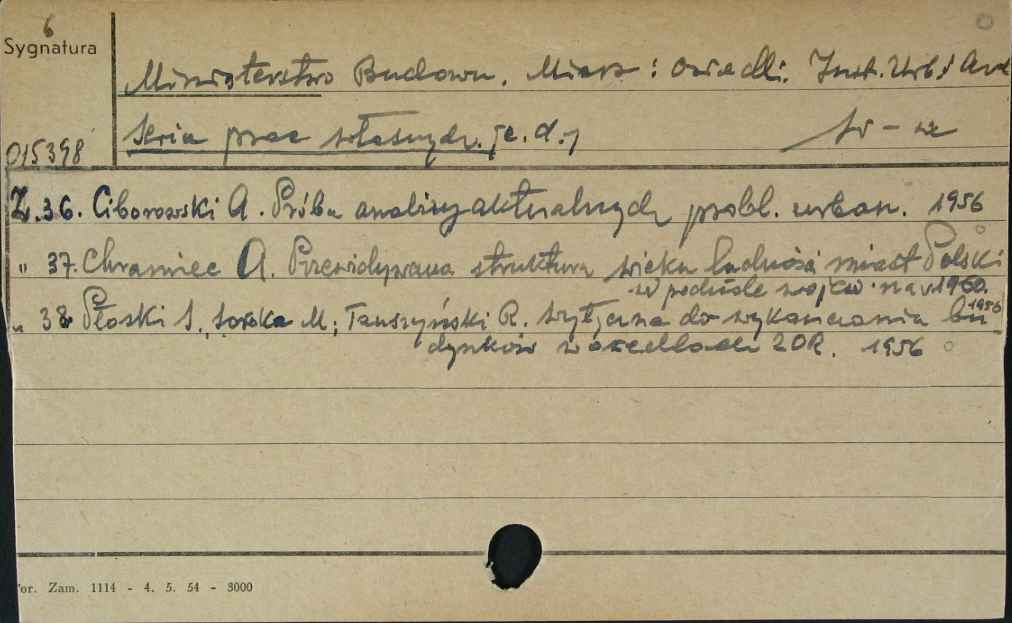 6
Sygnatura
Ministerstwo Budown. Miast i Osiedli. Inst. Urb. i Arch
015398
Seria prac własnych. [c. d.]
Z. 36. Ciborowski A. Próba analizy aktualnych probl. urban. 1956
" 37. Chramiec A. Przewidywana struktura wieku ludności miast Polski
w podziale wojew. na r. 1960.
1956
" 38 Płoski S., M., Tauszyński R. Wytyczne do wykańczania bu-
dynków w osiedlach ZOR. 1956
or. Zam. 1114 - 4. 5. 54 - 3000